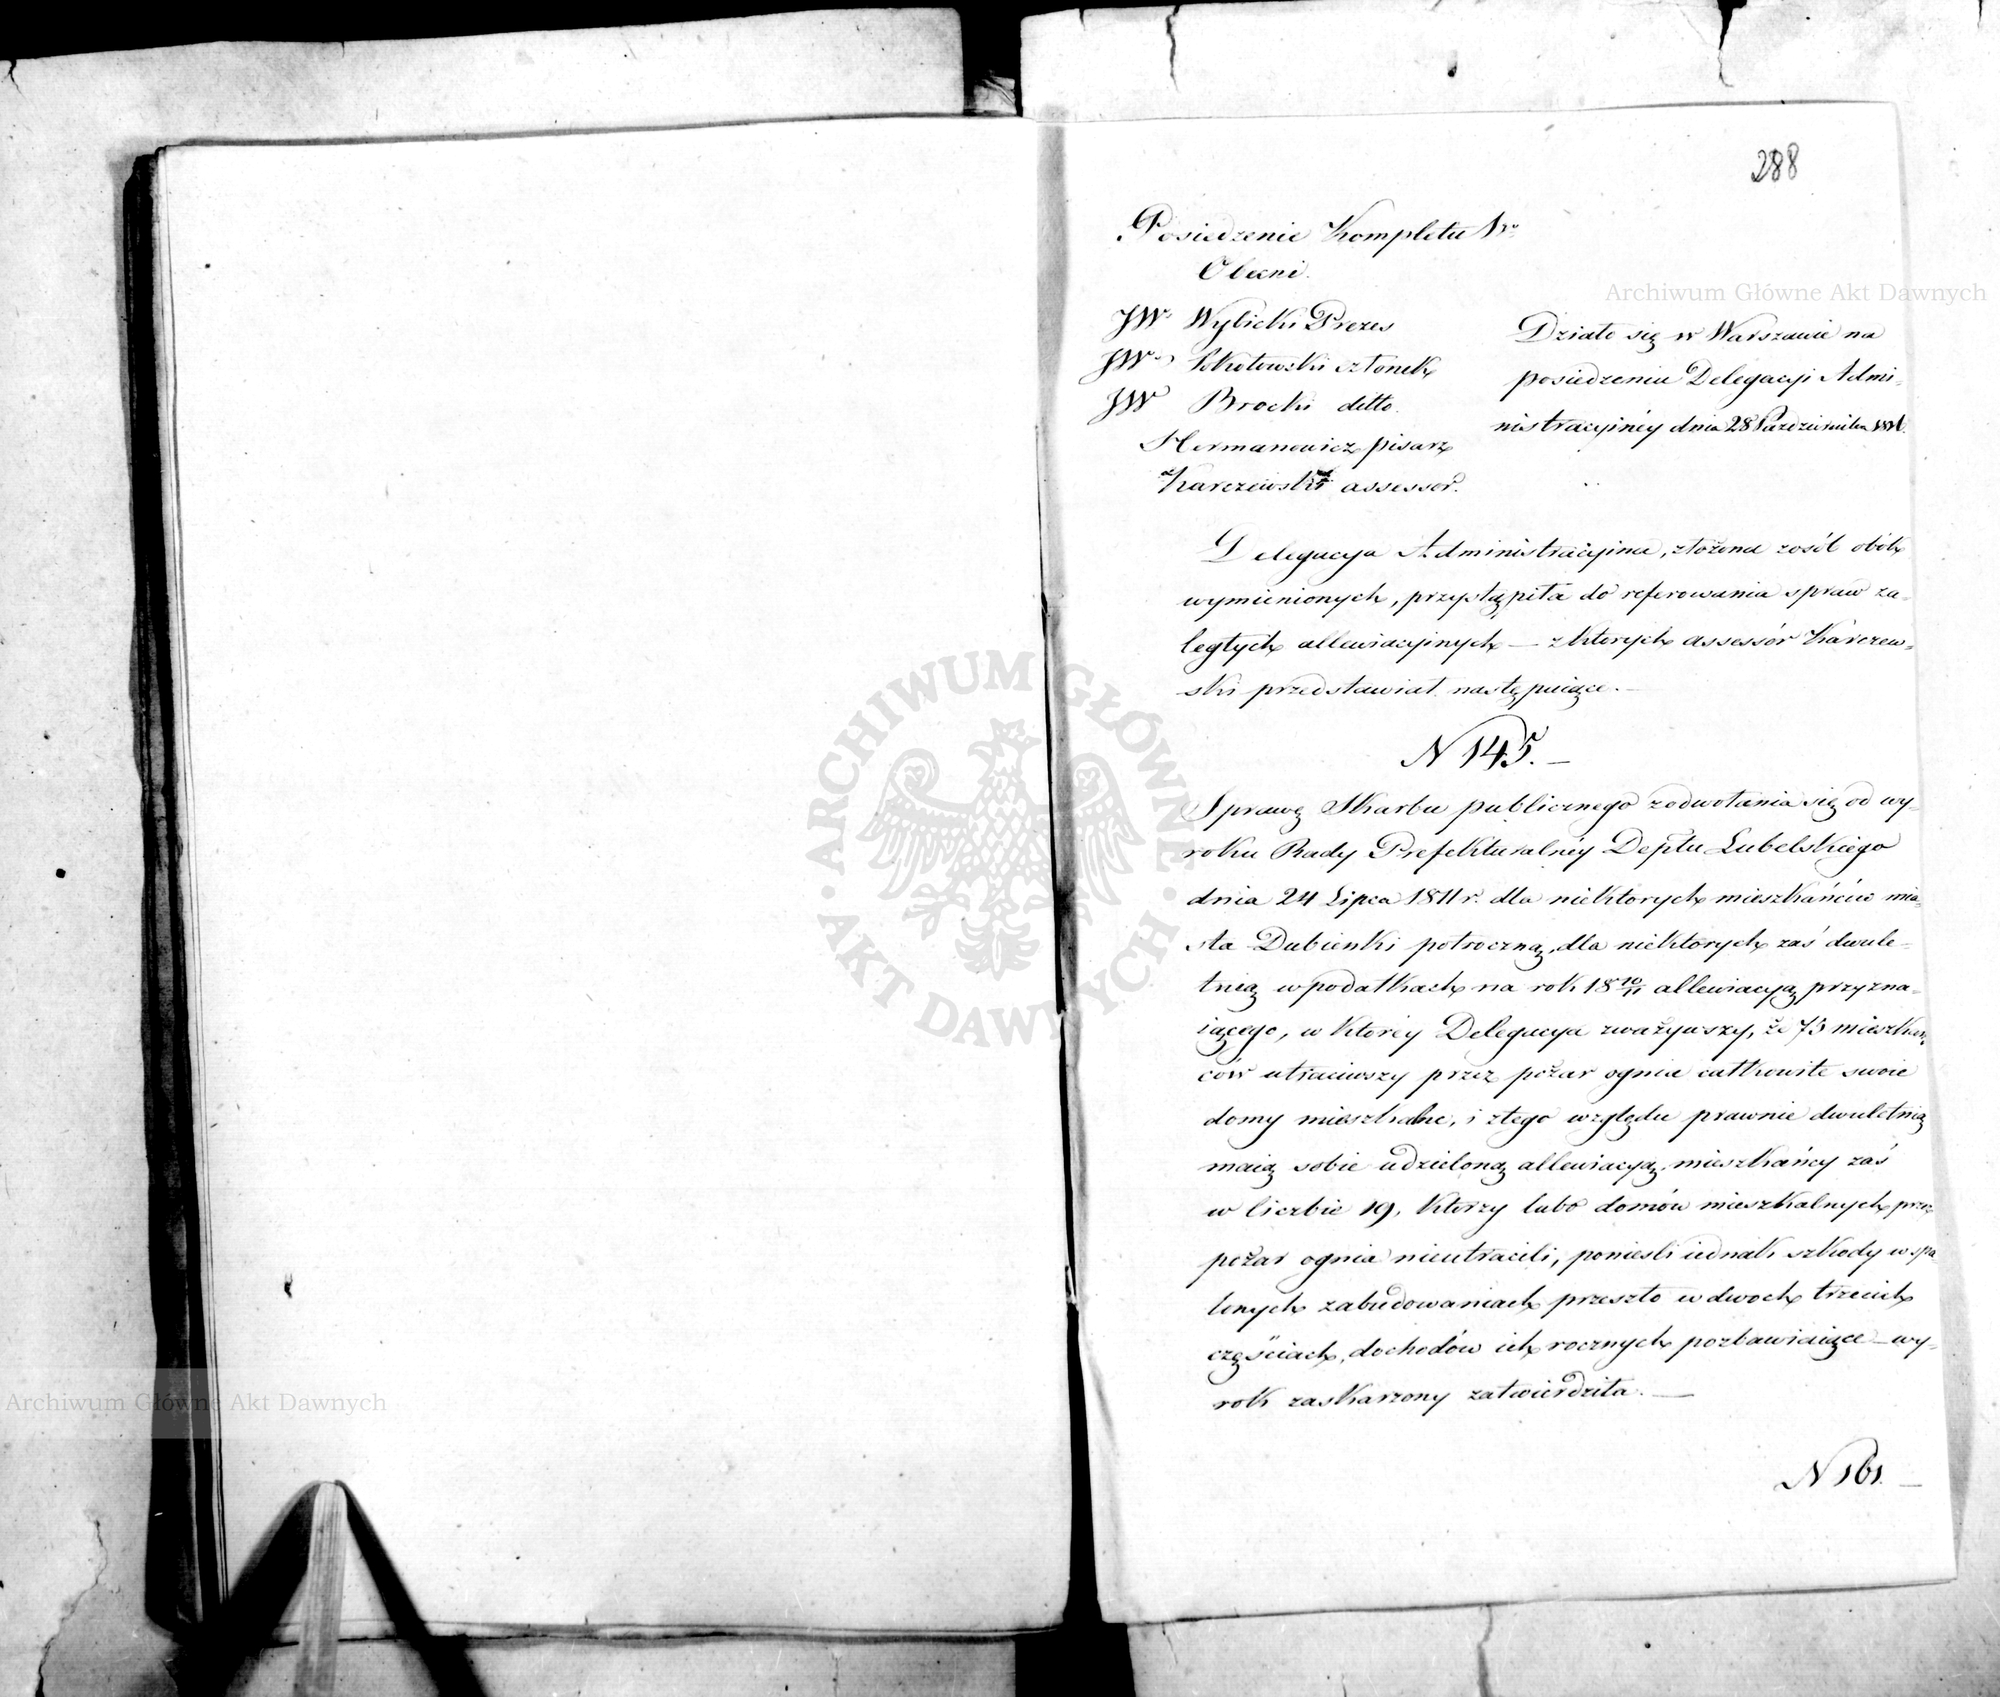 288
Posiedzenie Kompletu 1go
Obecni.
JW. Wybicki Prezes
JW. Sokołowski członek
JW Brocki detto.
Hermanowicz pisarz
Karczewski assessor.
Działo się w Warszawie na
posiedzeniu Delegacyi Admi-
nistracyinéy dnia 28 Października
Delegacya Administracyina, złożona zosób obok
wymienionych, przystąpiła do referowania spraw za-
ległych allewiacyinych — z których assessór Karczew-
ski przedstawiał następuiące. —
N 145. —
Sprawę Skarbu publicznego zodwołania się od wy-
roku Rady Prefekturalnéy Deptu Lubelskiego
dnia 24 Lipca 1811 r. dla niektorych mieszkańców mia-
sta Dubienki potroczną, dla niektorych zaś dwule-
tnią w podatkach na rok 18 10/11 allewiacyą przyzna-
iącego, w któréy Delegacya zważywszy, że 75 mieszkań
ców utraciwszy przez pożar ognia całkowite swoie
domy mieszkalne, i ztego względu prawnie dwuletnią
maią sobie udzieloną allewiacyą, mieszkańcy zaś
w liczbie 19, którzy lubo domów mieszkalnych przez
pożar ognia nieutracili, ponieśli iednak szkody w spa
lonych zabudowaniach przeszło w dwoch trzecich
częściach, dochodów ich rocznych pozbawiaiące – wy-
rok zaskarzony zatwierdziła. —
N 161. —
Archiwum Główne Akt Dawnych
ARCHIWUM GŁÓWNE AKT DAWNYCH
Archiwum Główne Akt Dawnych